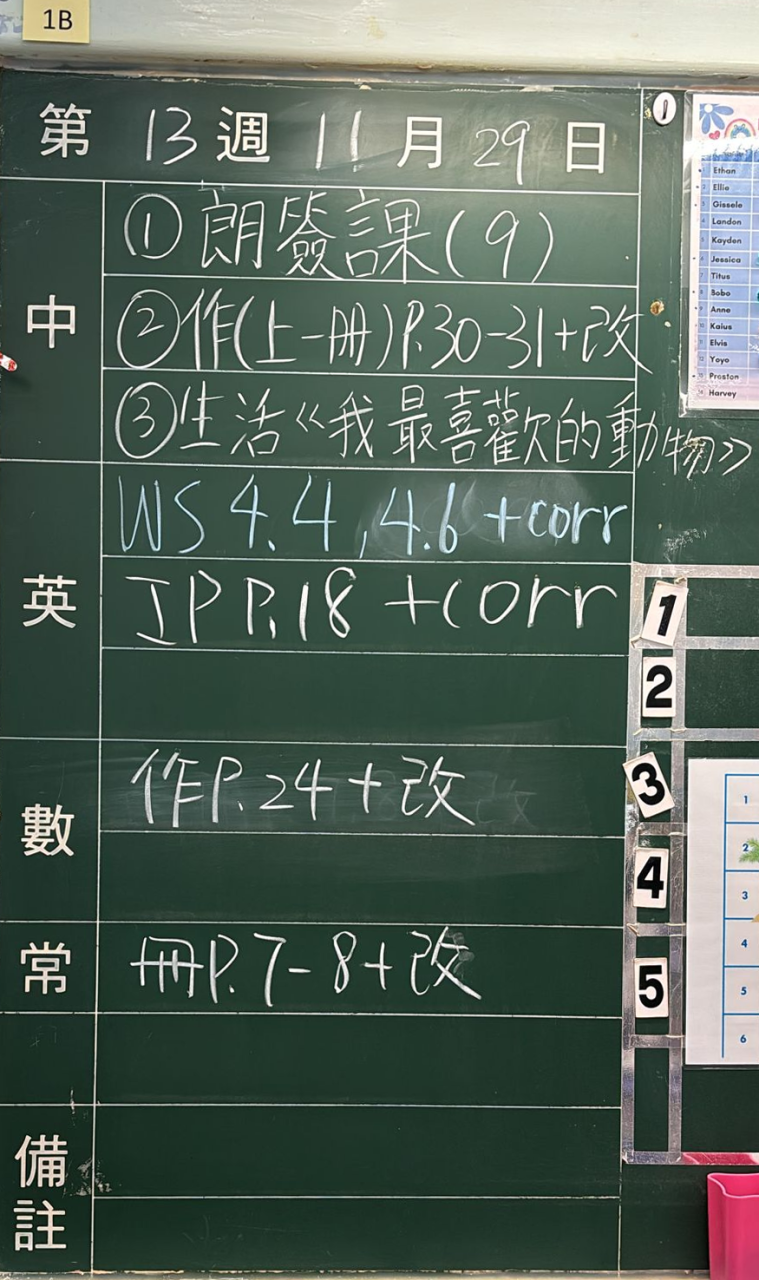 1B
第 13 週 11 月 29 日
中
① 朗簽課(9)
② 作(上一冊)P.30-31+改
③ 生活《我最喜歡的動物》
英
WS 4.4, 4.6 +corr
IP P.18 +corr
數
作P.24+改
常
冊P.7-8+改
備註
1
Ethan
2 Ellie
3 Gissele
4 Landon
5 Kayden
6 Jessica
7 Titus
8 Bobo
9 Anne
10 Kaius
11 Elvis
12 Yoyo
13 Preston
14 Harvey
1
2
3
4
5
1
2
3
4
5
6